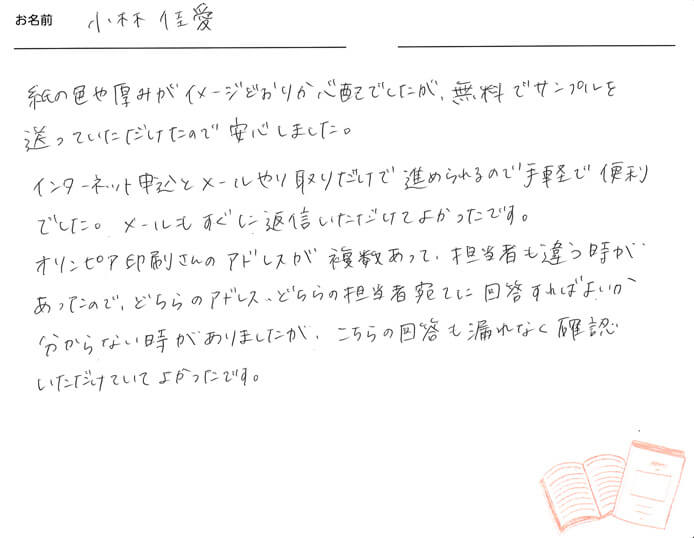 お名前 小林 佳愛
紙の色や厚みがイメージどおりか心配でしたが、無料でサンプルを
送っていただけたので安心しました。
インターネット申込とメールやり取りだけで進められるので手軽で便利
でした。メールもすぐに返信いただけてよかったです。
オリンピア印刷さんのアドレスが複数あって、担当者も違う時が
あったので、どちらのアドレス、どちらの担当者宛てに回答すればよいか
分からない時がありましたが、こちらの回答も漏れなく確認
いただけていてよかったです。